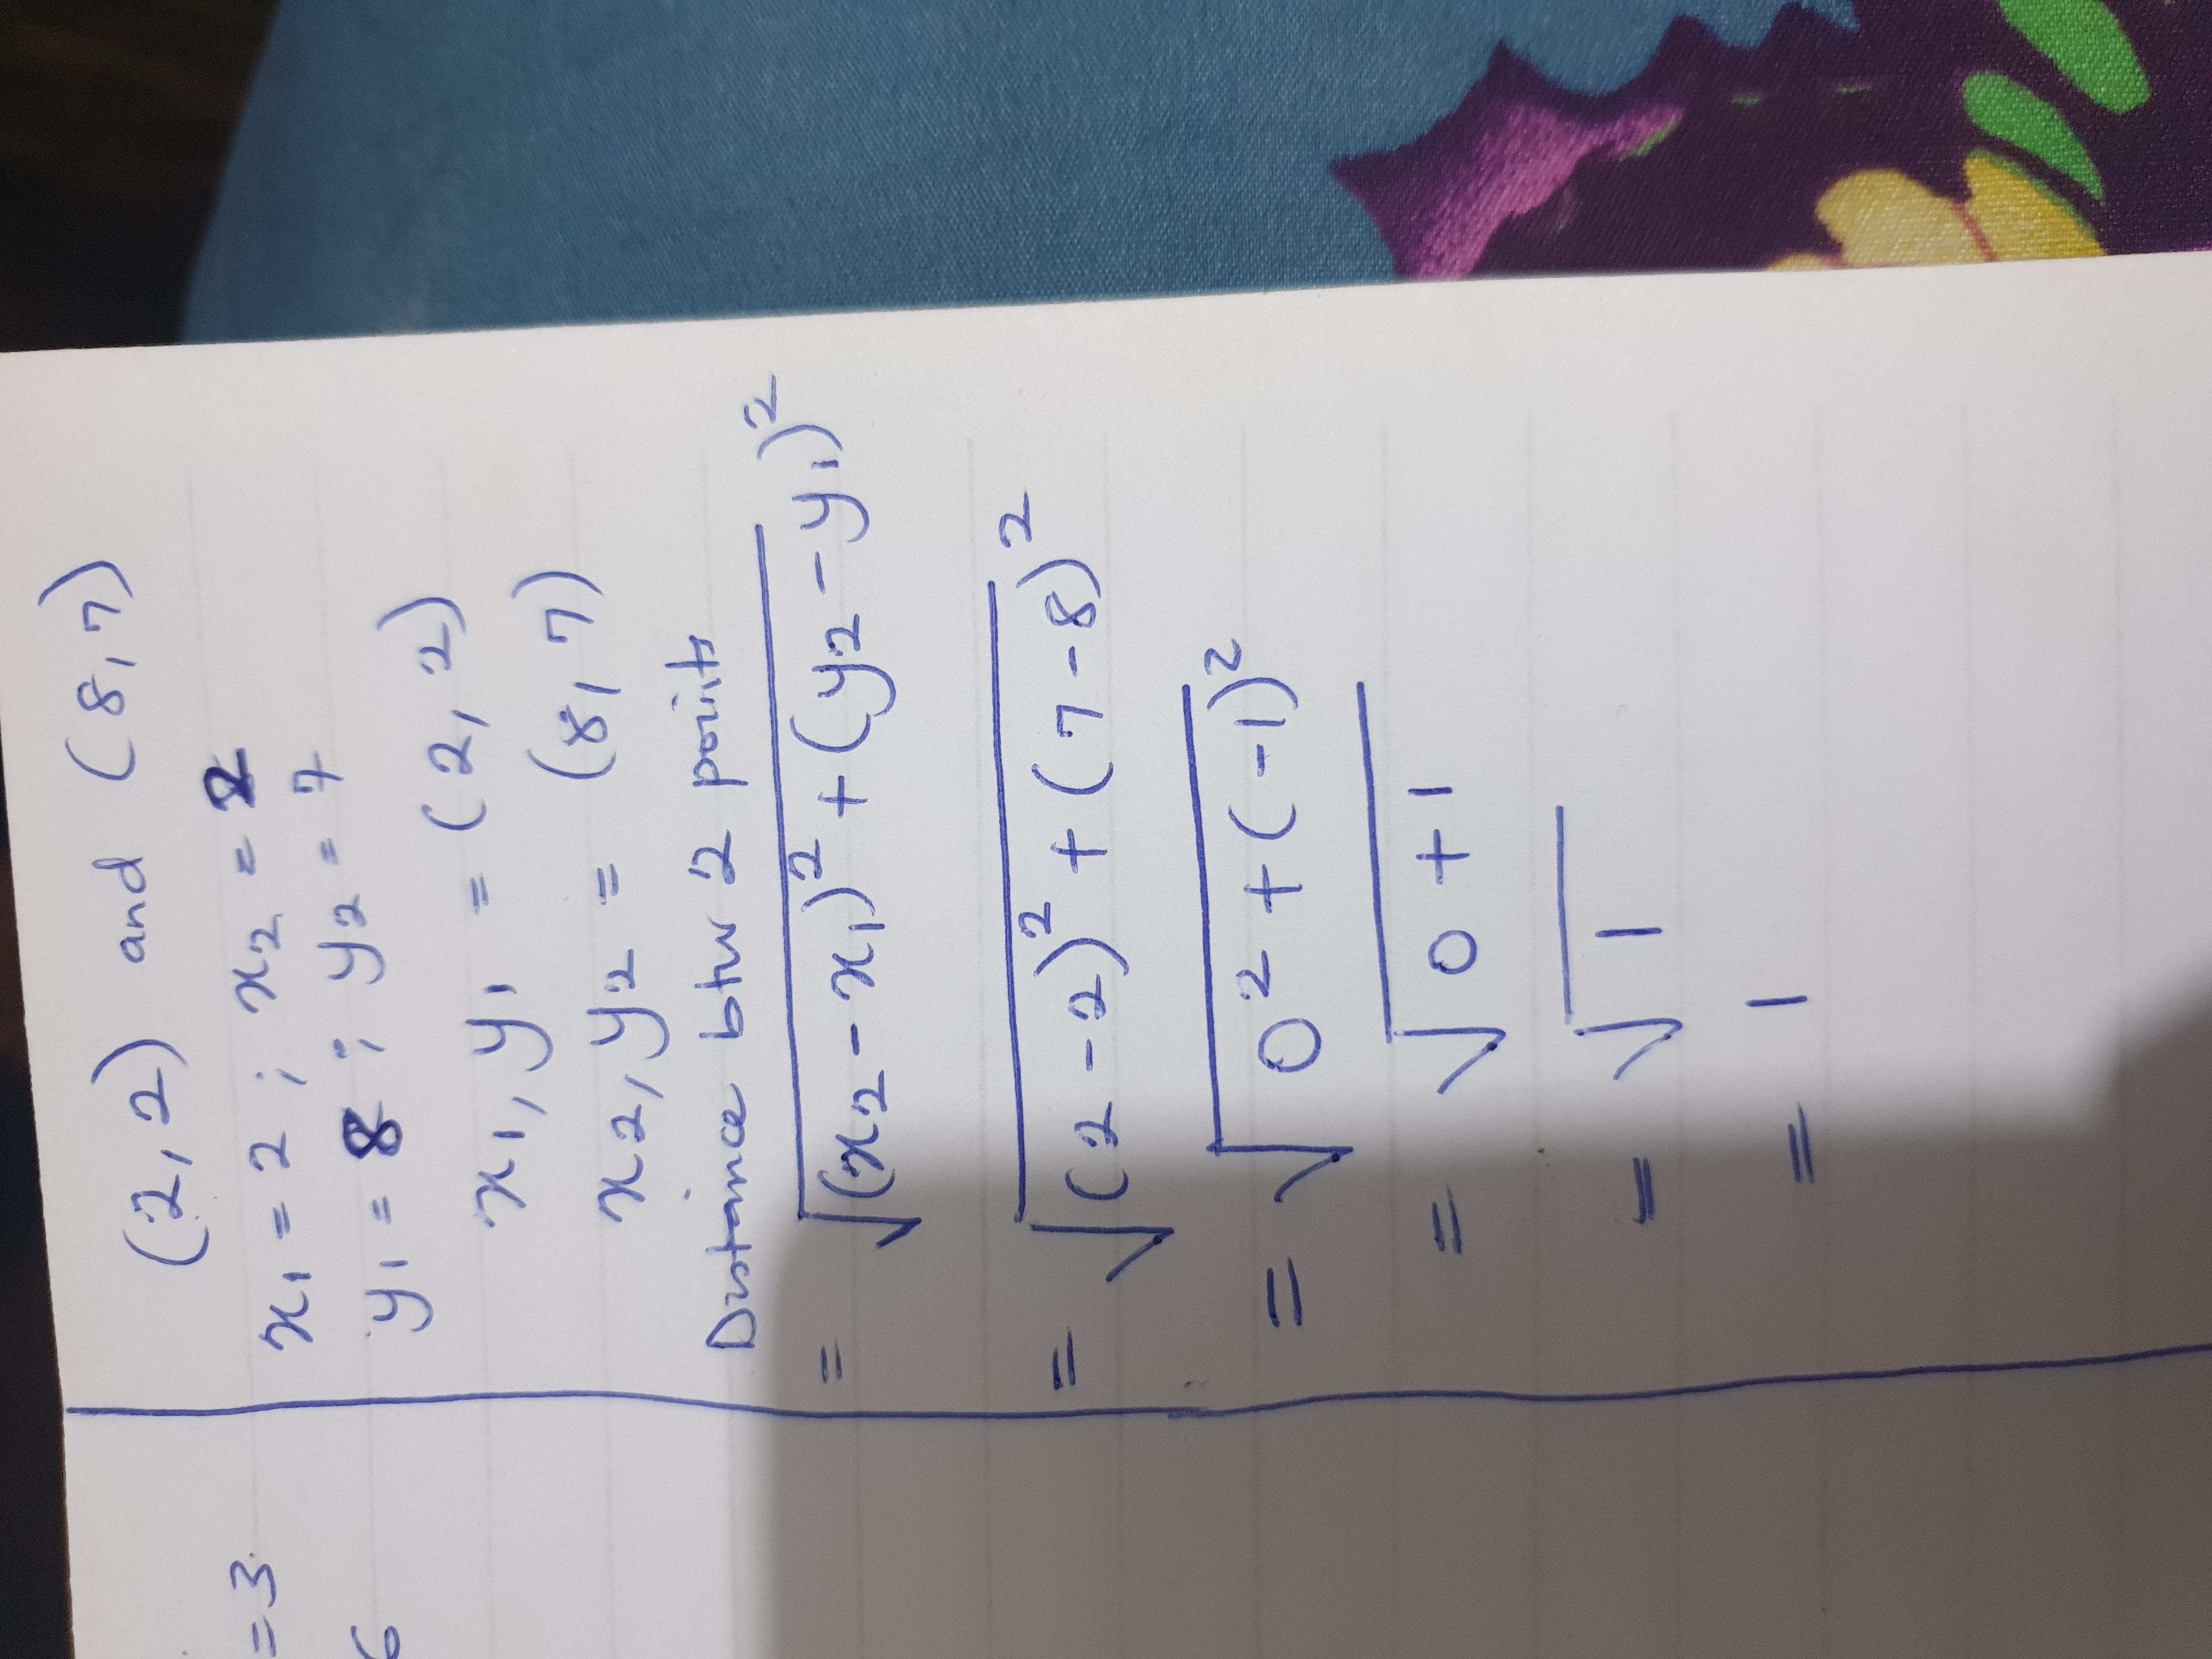 (2,2) and (8,7)
x₁ = 2 ; x₂ = 2
y₁ = 8 ; y₂ = 7
x₁, y₁ = (2,2)
x₂, y₂ = (8,7)
Distance btw 2 points
= √(x₂ - x₁)² + (y₂ - y₁)²
= √(2-2)² + (7-8)²
= √0² + (-1)²
= √0 + 1
= √1
= 1
=3
6